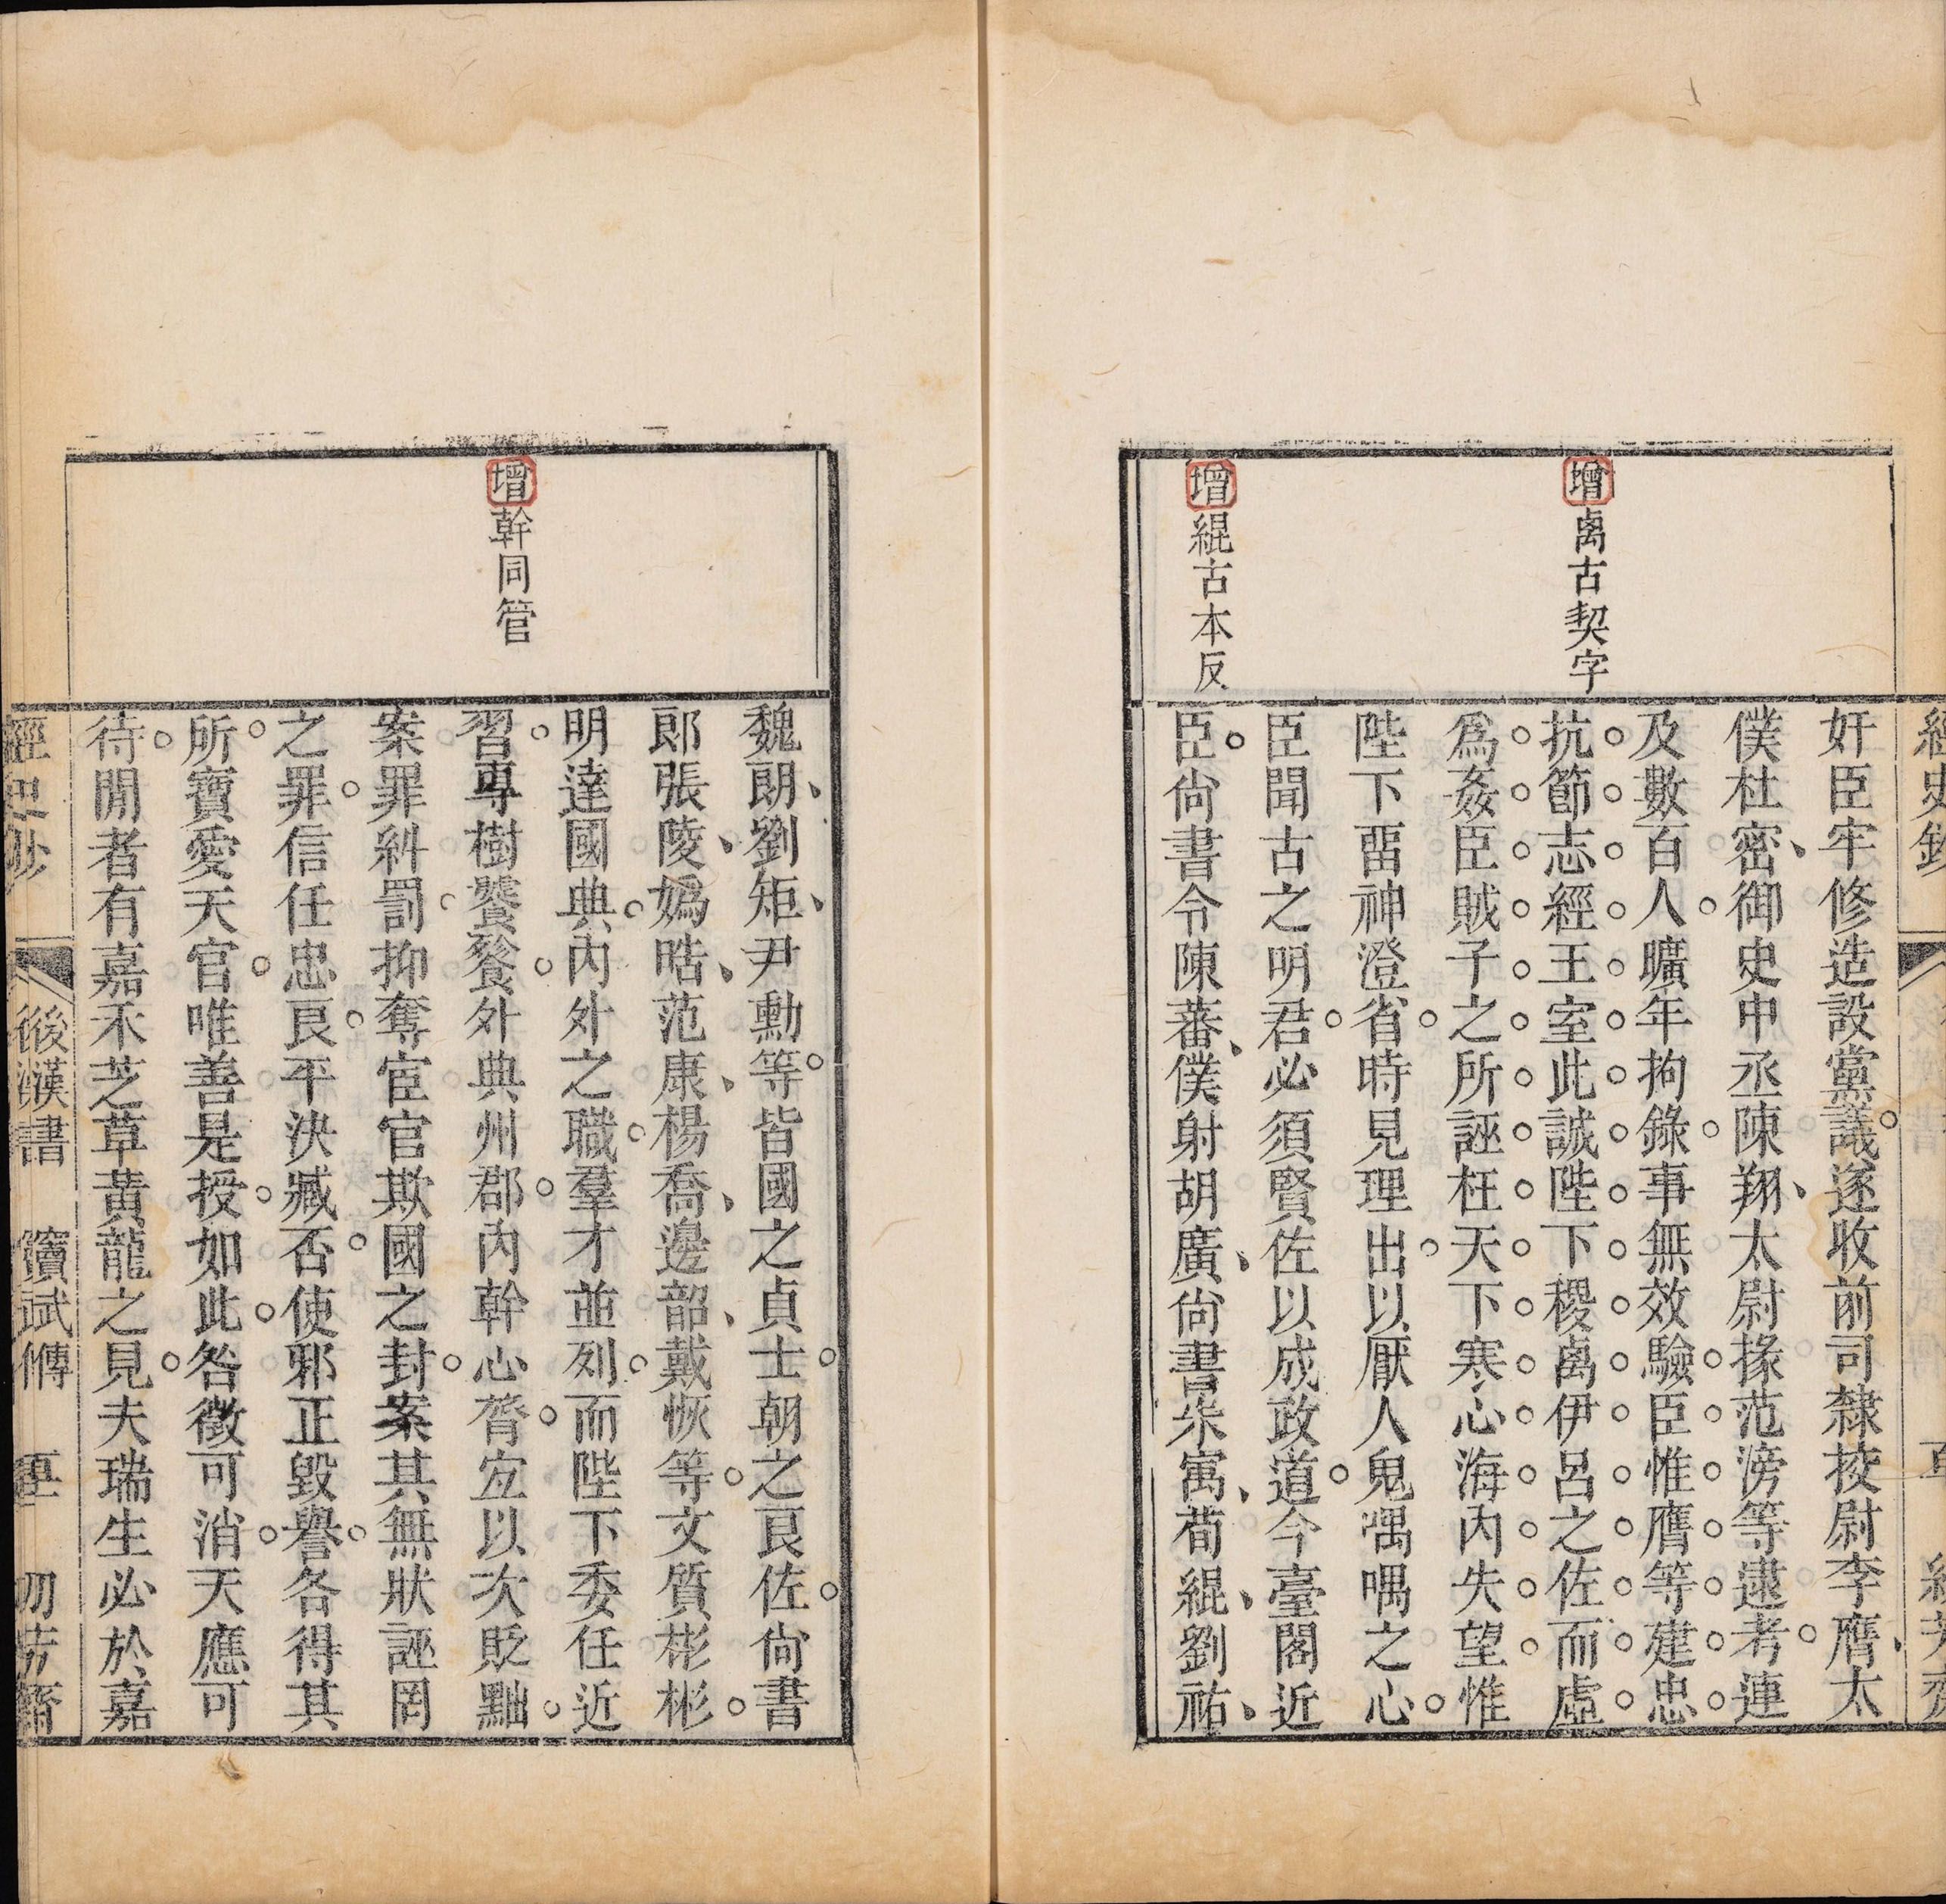 增离古契字
增緄古本反
奸臣牢修造設黨議遂收前司隸挍尉李膺太
僕杜密御史中丞陳翔太尉掾范滂等逮考連
及數百人曠年拘錄事無效驗臣惟膺等建忠
抗節志經王室此誠陛下稷离伊呂之佐而虛
爲姦臣賊子之所誣枉天下寒心海內失望惟
陛下畱神澄省時見理出以厭人鬼喁喁之心
臣聞古之明君必須賢佐以成政道今臺閣近
臣尙書令陳蕃僕射胡廣尙書朱㝢荀緄劉祐
增幹同管
魏朗劉矩尹勳等皆國之貞士朝之良佐尙書
郎張陵嬀晧范康楊喬邊韶戴恢等文質彬彬
明達國典內外之職羣才並列而陛下委任近
習專樹饕餮外典州郡內幹心膂宐以次貶黜
案罪糾罰抑奪宦官欺國之封案其無狀誣罔
之罪信任忠良平決臧否使邪正毀譽各得其
所寶愛天官唯善是授如此咎徵可消天應可
待閒者有嘉禾芝草黃龍之見夫瑞生必於嘉
經史鈔 後漢書 竇武傳